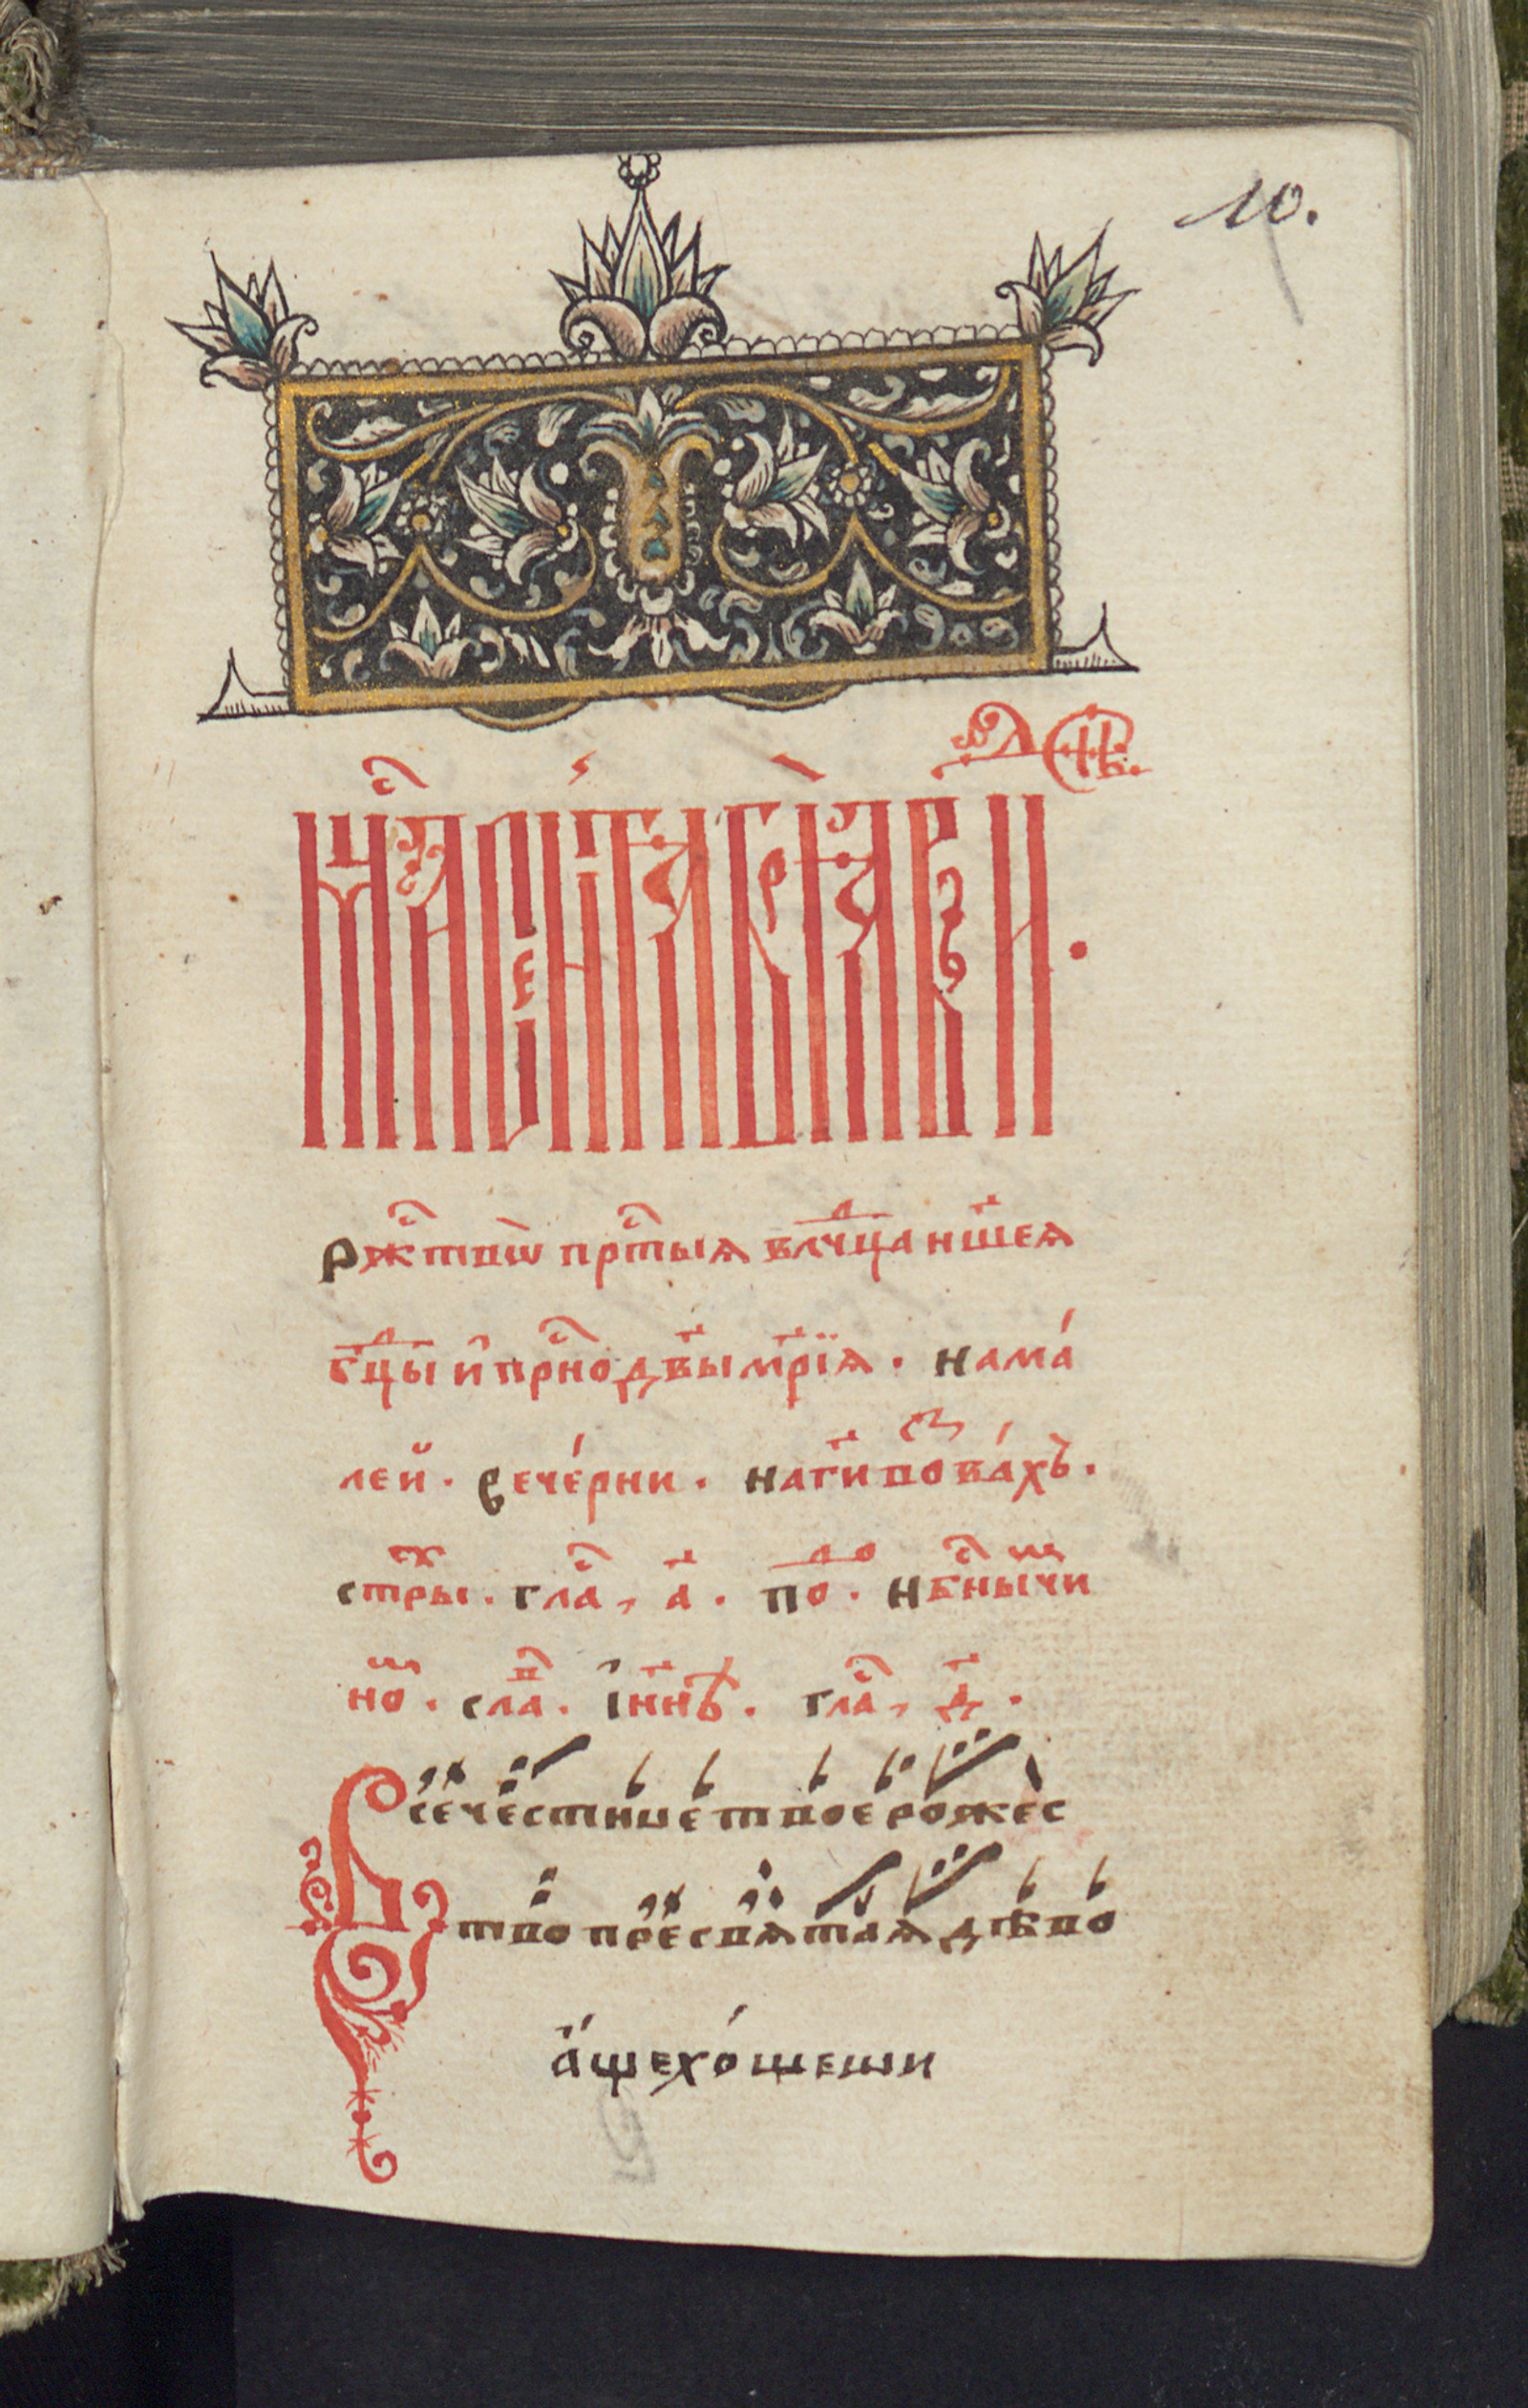 10.
мⷭ҇ца сентѧбрѧ въ и҃ день.
рж҃тво прⷭ҇тыѧ влⷣчца нш҃еѧ
бцⷣы и҆ прⷭ҇нодв҃ы мр҃їѧ. нама́
лей. вече́рни. на гд҃и возва́хъ.
стⷯры. глаⷭ, а҃. поⷣⷪ. нбⷭ҇ныⷨ чи
ноⷨ. слаⷡ. і҆нн҃ѣ. глаⷭ, д҃.
Всечестное твое рожес
тво пресвѧтаѧ дѣво
а҆́ще хо́щеши